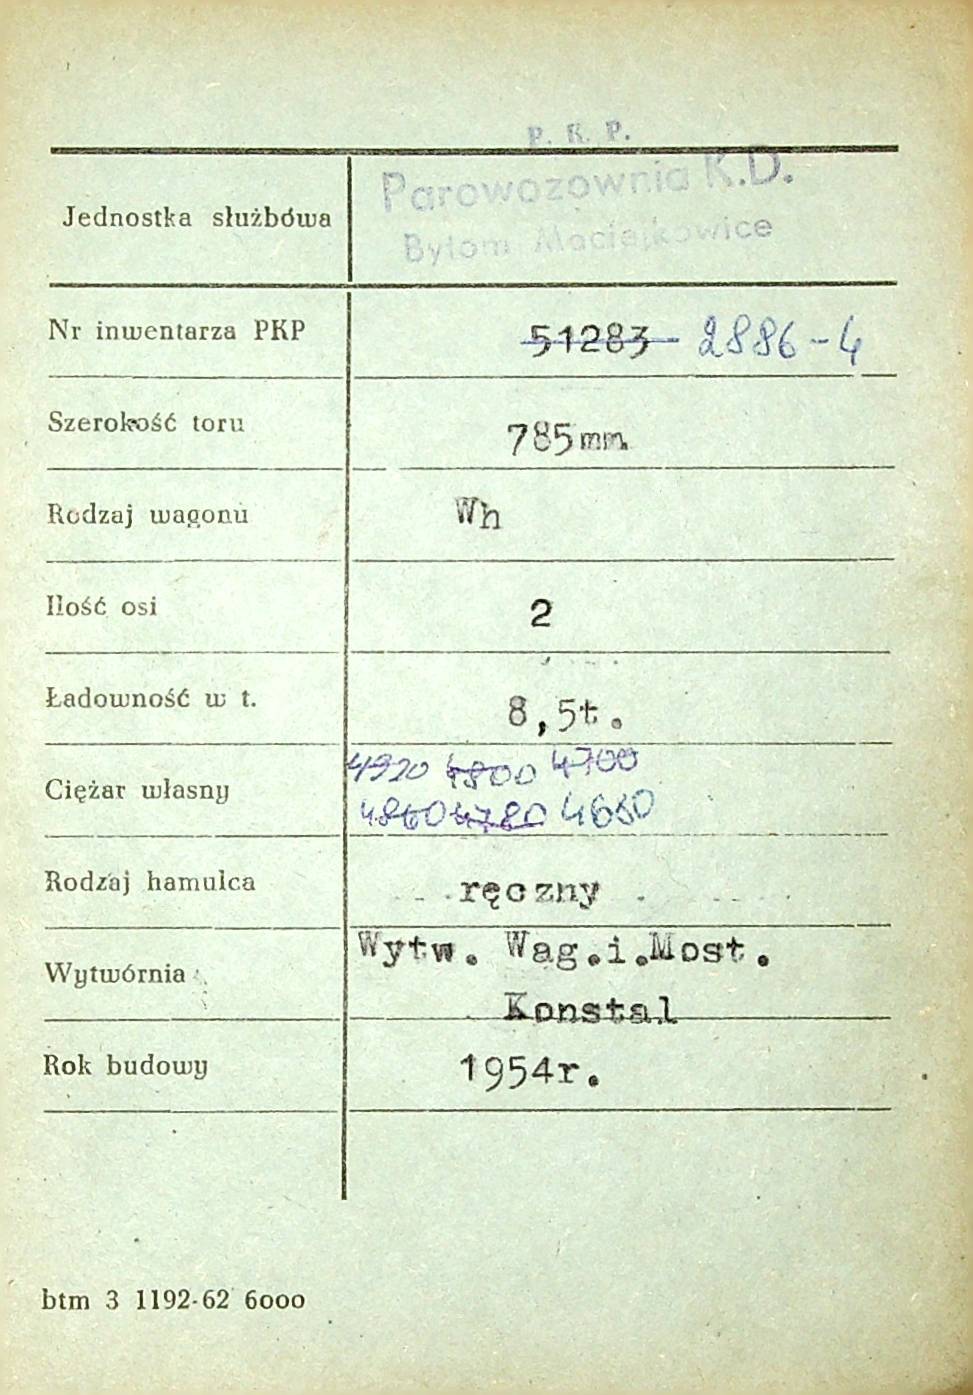 P. K. P.
Parowozownia K.D.
Jednostka służbowa
Bytom Maciejkowice
Nr inwentarza PKP 51283 2886-4
Szerokość toru 785mm.
Rodzaj wagonu Wh
Ilość osi 2
Ładowność w t. 8,5t.
4920 4800 4700
Ciężar własny
4860 4780 4650
Rodzaj hamulca ręczny
Wytw. Wag.i.Most.
Wytwórnia
Konstal
Rok budowy 1954r.
btm 3 1192-62 6000